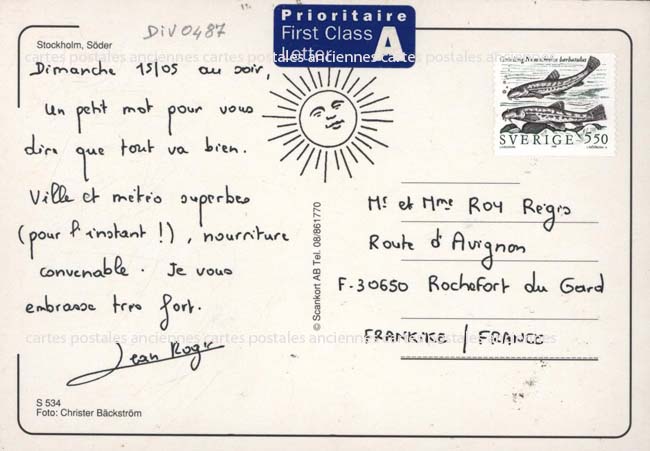 DIV0487
Prioritaire
First Class
Letter
A
Stockholm, Söder
cartes postales anciennes cartes postales anciennes cartes postales anciennes
Dimanche 15/05 au soir,
Un petit mot pour vous
dire que tout va bien.
Ville et météo superbes
(pour l'instant !), nourriture
convenable. Je vous
embrasse très fort.
Jean Rogir
S 534
Foto: Christer Bäckström
© Scankort AB Tel. 08/861770
SVERIGE 5.50
Mr et Mme ROY Régis
Route d'Avignon
F-30650 Rochefort du Gard
FRANKIKE / FRANCE
cartes postales anciennes cartes postales anciennes cartes postales anciennes